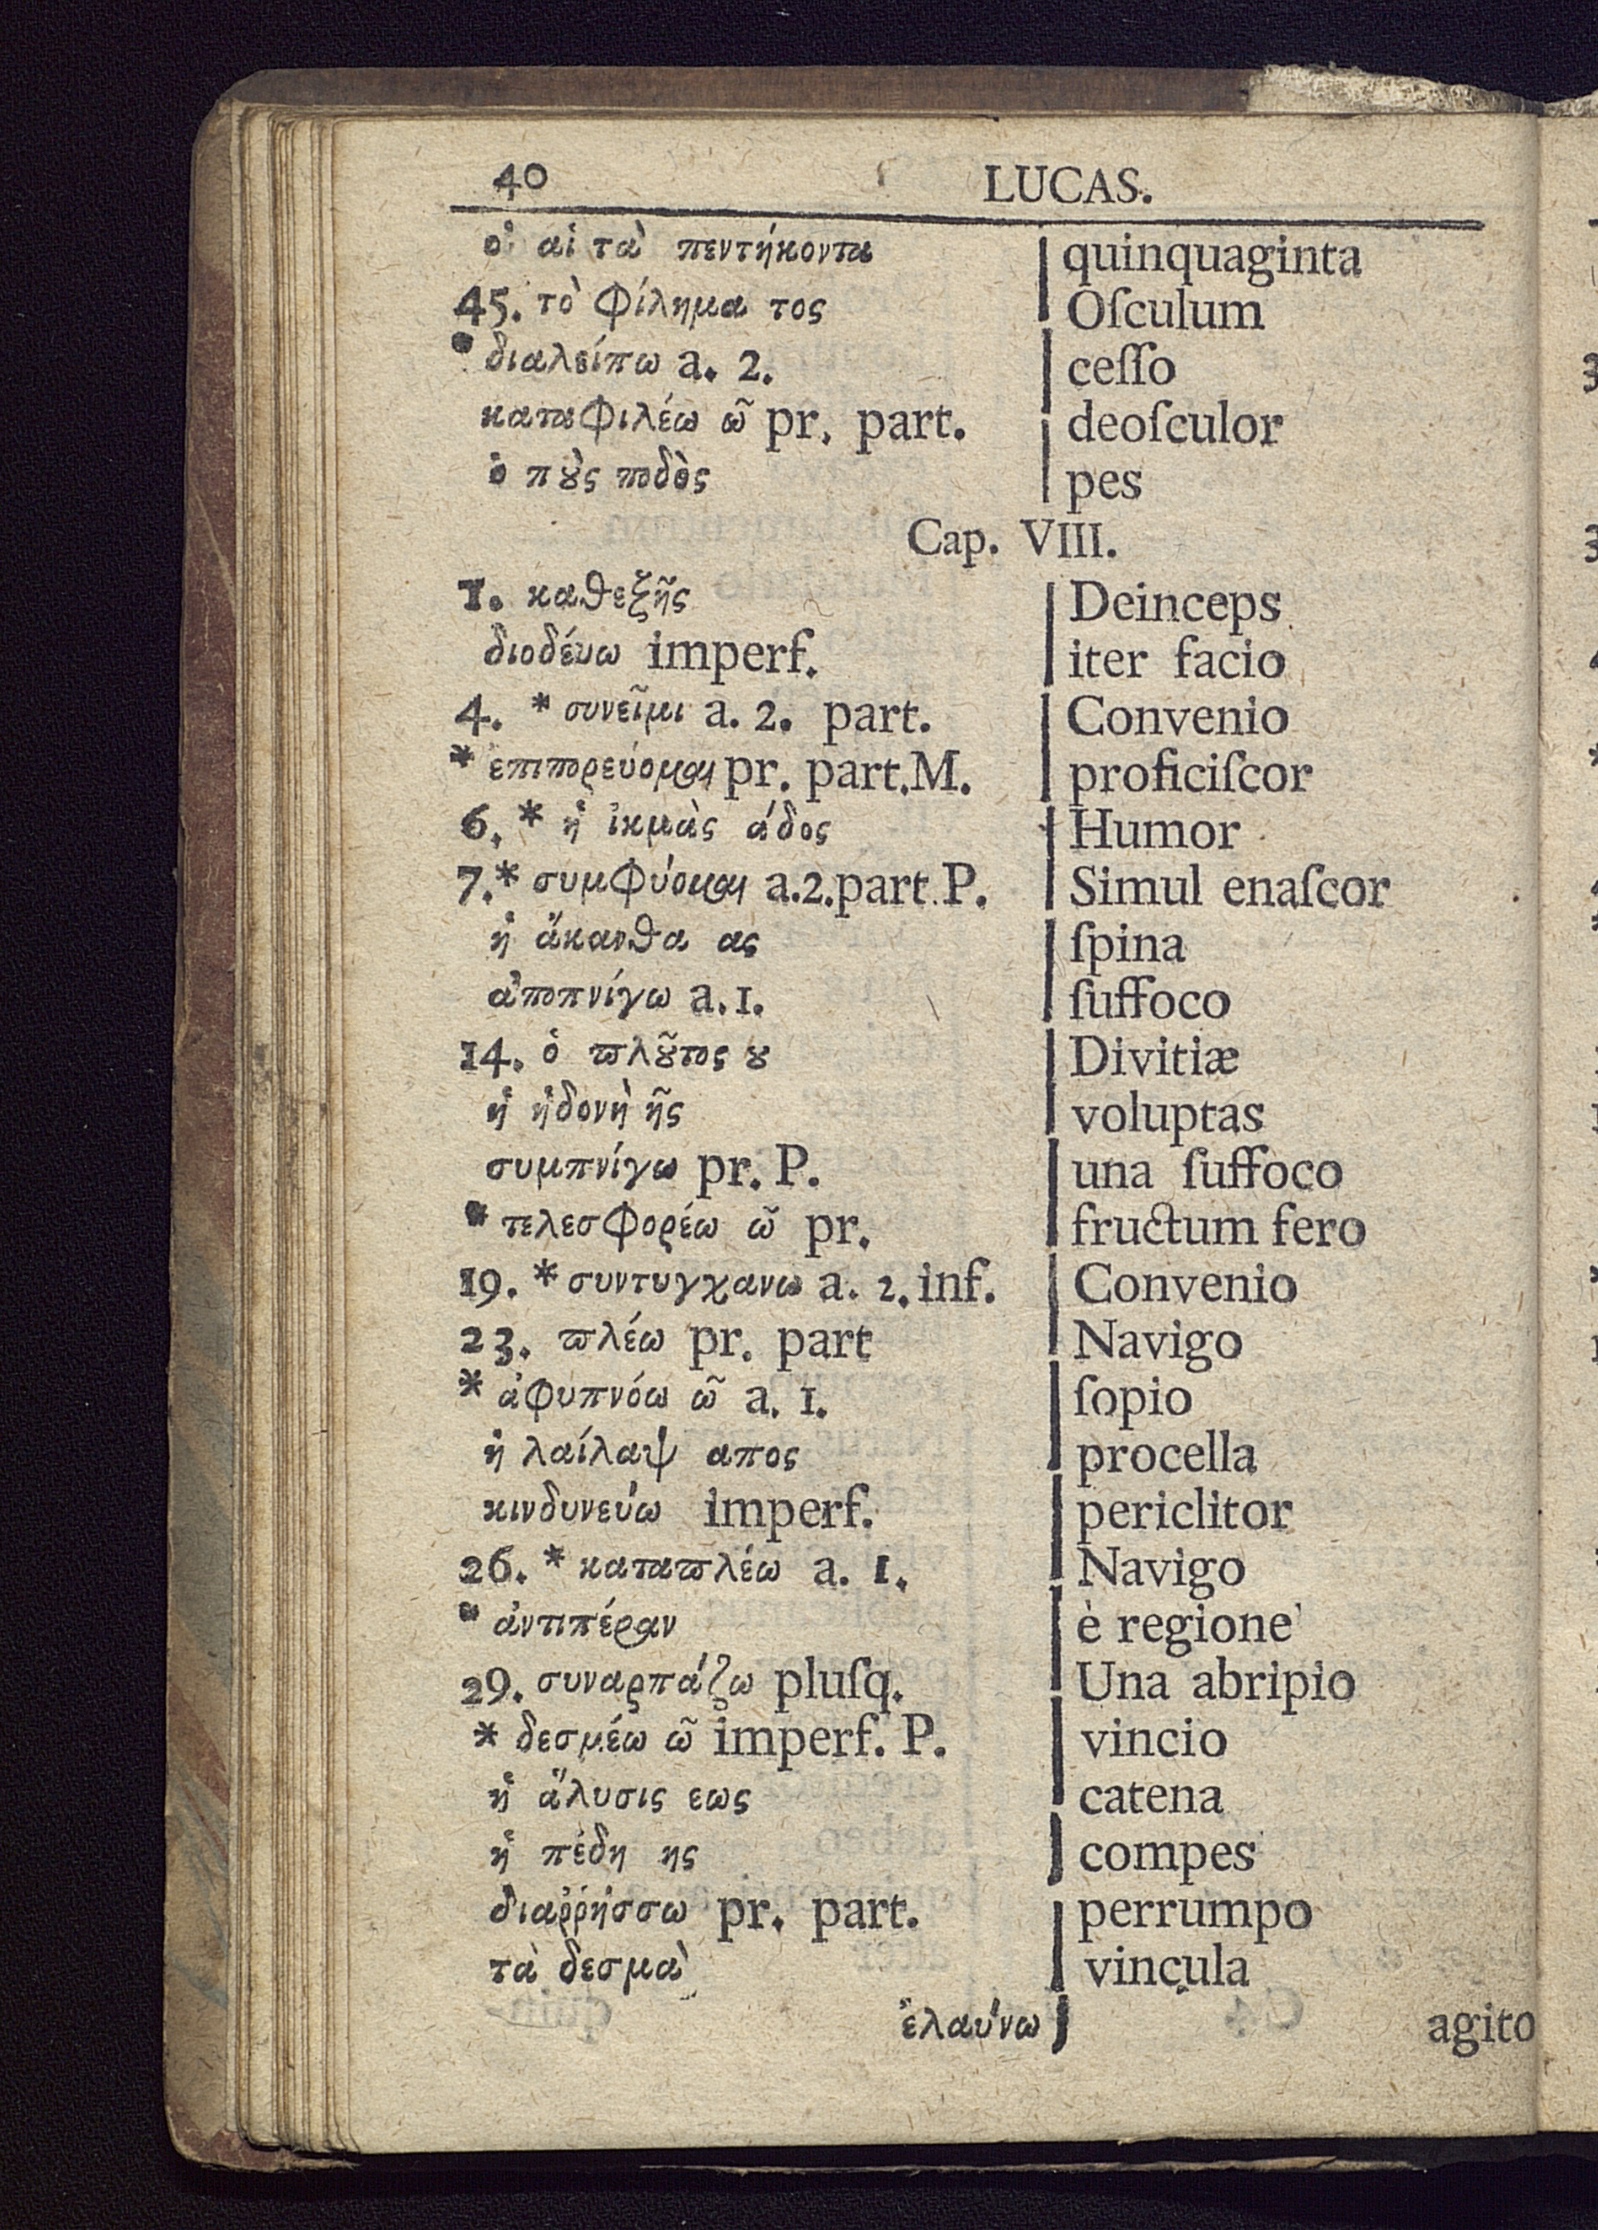 40 LUCAS.
οἱ αἱ τὰ πεντήκοντα | quinquaginta
45. τὸ φίλημα τος | Oſculum
* διαλείπω a. 2. | ceſſo
καταφιλέω ῶ pr. part. | deoſculor
ὁ πȣ̀ς ποδὸς | pes
Cap. VIII.
1. καθεξῆς | Deinceps
διοδέυω imperf. | iter facio
4. * συνεῖμι a. 2. part. | Convenio
* ἐπιπορεύομαι pr. part. M. | proficiſcor
6. * ἡ ἰκμὰς άδος | Humor
7. * συμφύομαι a. 2. part. P. | Simul enaſcor
ἡ ἄκανθα ας | ſpina
ἀποπνίγω a. 1. | ſuffoco
14. ὁ ϖλȣ͂τος ȣ | Divitiæ
ἡ ἡδονὴ ῆς | voluptas
συμπνίγω pr. P. | una ſuffoco
* τελεσφορέω ῶ pr. | fructum fero
19. * συντυγχανω a. 2. inf. | Convenio
23. ϖλέω pr. part | Navigo
* ἀφυπνόω ῶ a. 1. | ſopio
ἡ λαίλαψ απος | procella
κινδυνεύω imperf. | periclitor
26. * καταϖλέω a. 1. | Navigo
* ἀντιπέραν | è regione
29. συναρπάζω pluſq. | Una abripio
* δεσμέω ῶ imperf. P. | vincio
ἡ ἅλυσις εως | catena
ἡ πέδη ης | compes
διαῤῥήσσω pr. part. | perrumpo
τὰ δεσμὰ | vincula
ἐλαύνω | agito